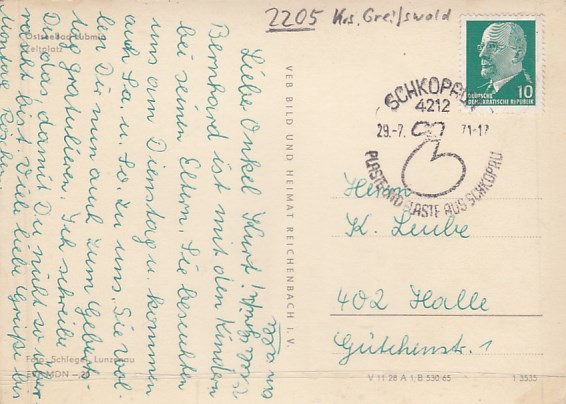 2205 Krs. Greifswald
Ostseebad Lubmin
Zeltplatz
Liebe Onkel Kurt!
Bernhard ist mit den Kindern
bei seinen Eltern. Sie besuchten
uns am Dienstag u. kommen
auch Sa. u. So. zu uns. Sie wol-
len Dir nun auch zum Geburts-
tag gratulieren. Ich schreibe
Dir das, damit Du nicht so über-
rascht bist. Viele liebe Grüße der
Foto: Schlegel, Lunzenau
VEB BILD UND HEIMAT REICHENBACH I. V.
SCHKOPAU
4212
29.-7. 71-17
PLASTE UND ELASTE AUS SCHKOPAU
10
DEUTSCHE
DEMOKRATISCHE REPUBLIK
Herrn
K. Leube
402 Halle
Gütchenstr. 1
V 11 28 A 1 B 530/65
1 3535